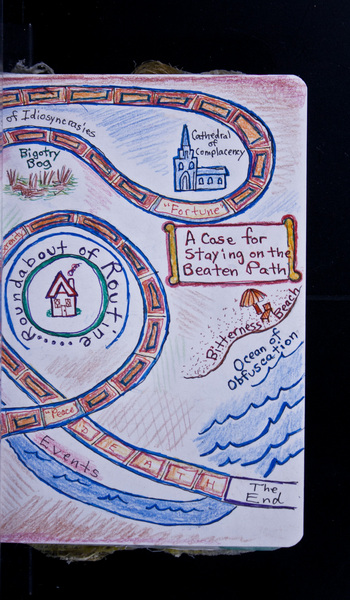 of Idiosyncrasies
Cathedral
of
Complacency
Bigotry
Bog
"Fortune"
A Case for
Staying on the
Beaten Path
Roundabout of Routine......
Bitterness Beach
Ocean of
Obfuscation
"Peace"
DEATH
Events
The
End